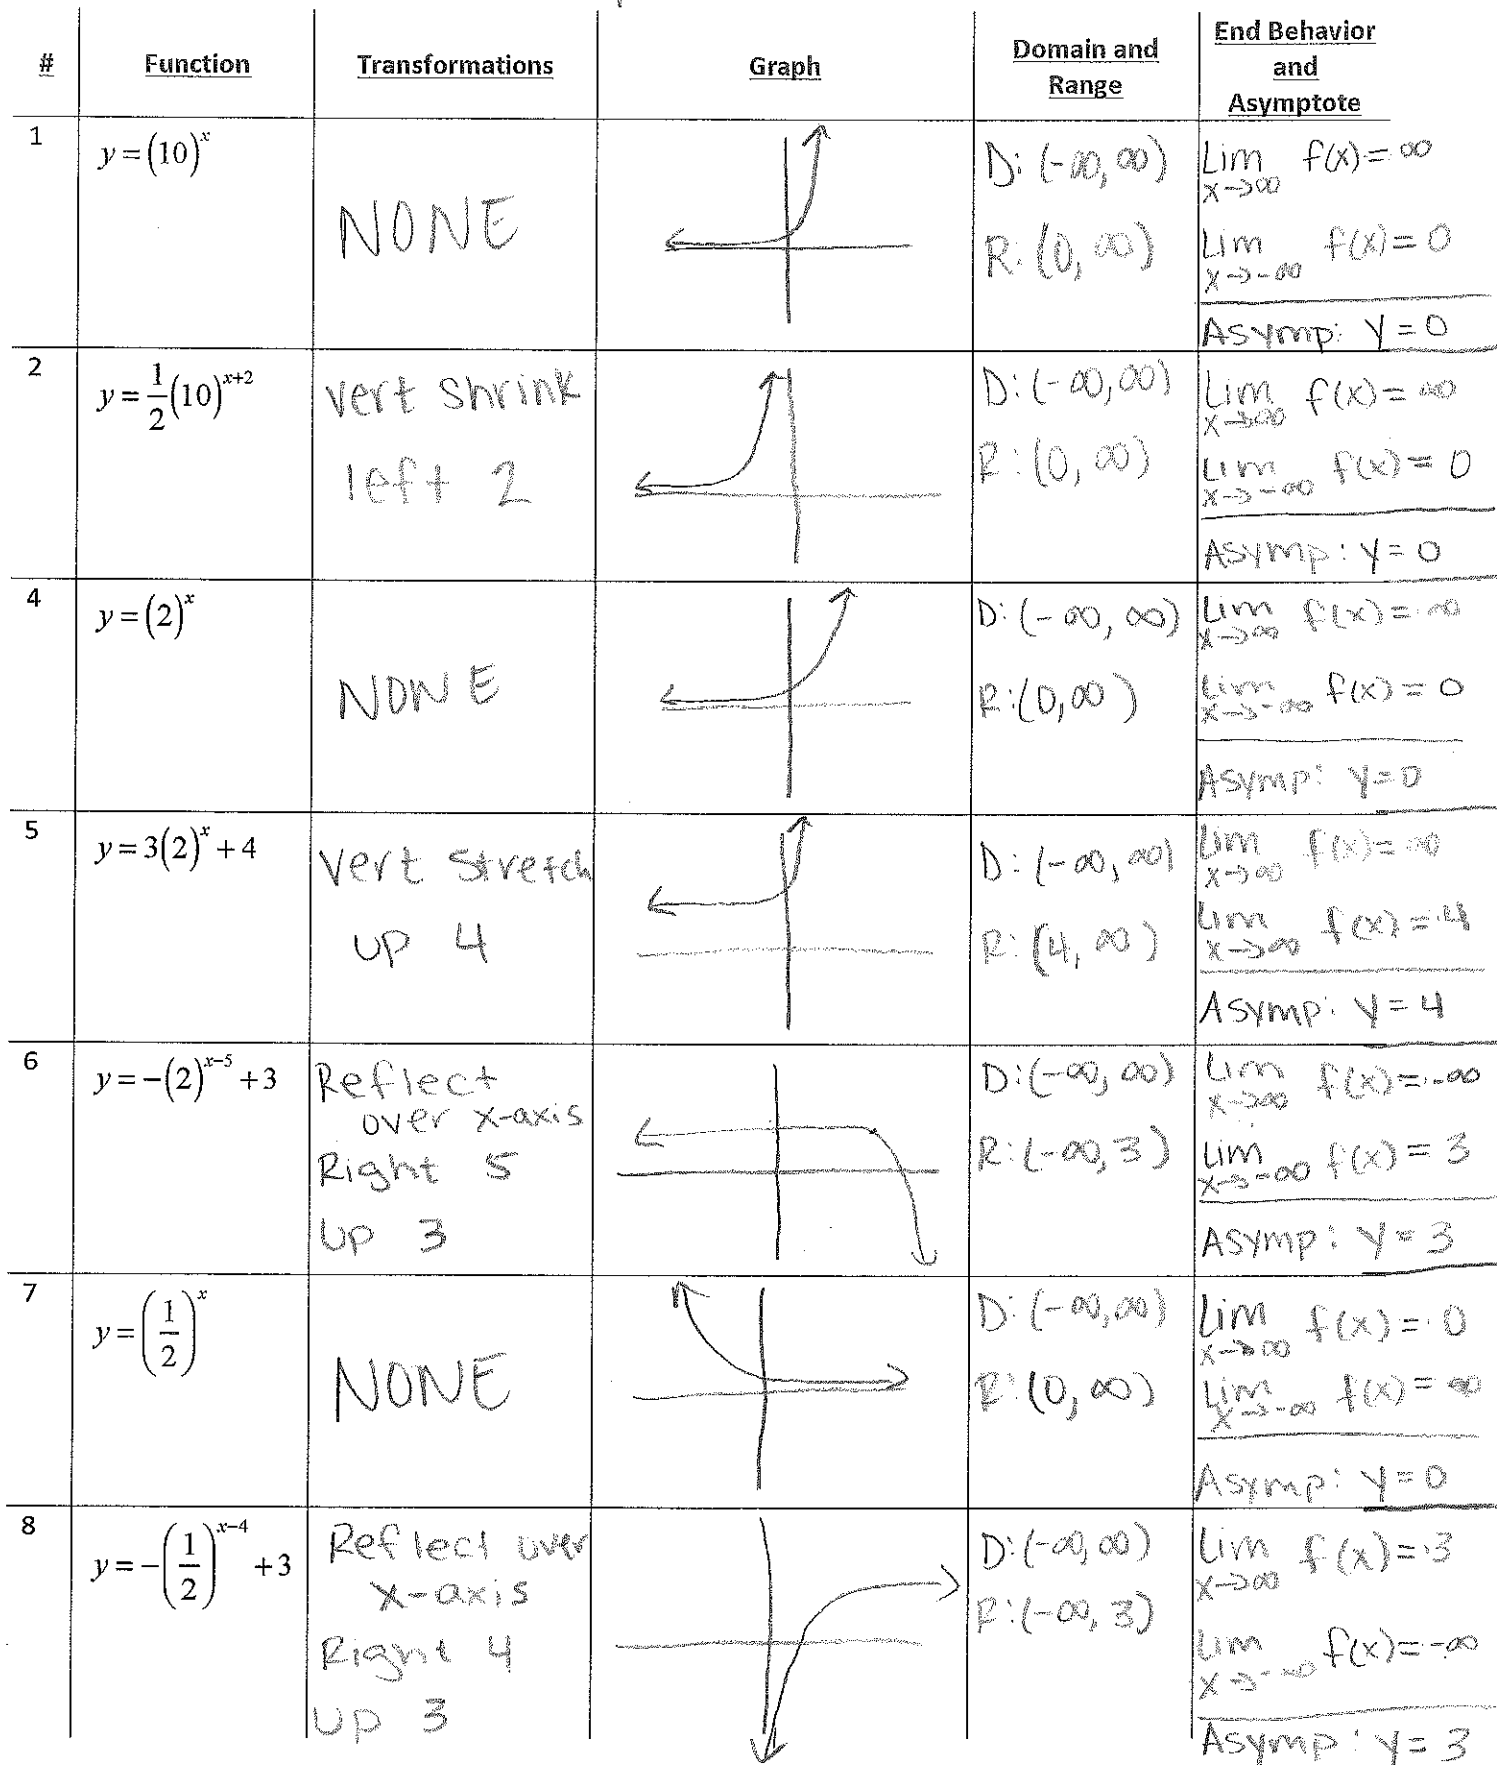 #
Function
Transformations
Graph
Domain and
Range
End Behavior
and
Asymptote
1
y = (10)^x
NONE
D: (-∞, ∞)
R: (0, ∞)
Lim x→∞ f(x) = ∞
Lim x→-∞ f(x) = 0
Asymp: y = 0
2
y = 1/2 (10)^(x+2)
vert shrink
left 2
D: (-∞, ∞)
R: (0, ∞)
Lim x→∞ f(x) = ∞
Lim x→-∞ f(x) = 0
Asymp: y = 0
4
y = (2)^x
NONE
D: (-∞, ∞)
R: (0, ∞)
Lim x→∞ f(x) = ∞
Lim x→-∞ f(x) = 0
Asymp: y = 0
5
y = 3(2)^x + 4
vert stretch
up 4
D: (-∞, ∞)
R: (4, ∞)
Lim x→∞ f(x) = ∞
Lim x→∞ f(x) = 4
Asymp: y = 4
6
y = -(2)^(x-5) + 3
Reflect
over x-axis
Right 5
Up 3
D: (-∞, ∞)
R: (-∞, 3)
Lim x→∞ f(x) = -∞
Lim x→-∞ f(x) = 3
Asymp: y = 3
7
y = (1/2)^x
NONE
D: (-∞, ∞)
R: (0, ∞)
Lim x→∞ f(x) = 0
Lim x→-∞ f(x) = ∞
Asymp: y = 0
8
y = -(1/2)^(x-4) + 3
Reflect over
x-axis
Right 4
Up 3
D: (-∞, ∞)
R: (-∞, 3)
Lim x→∞ f(x) = 3
Lim x→-∞ f(x) = -∞
Asymp: y = 3